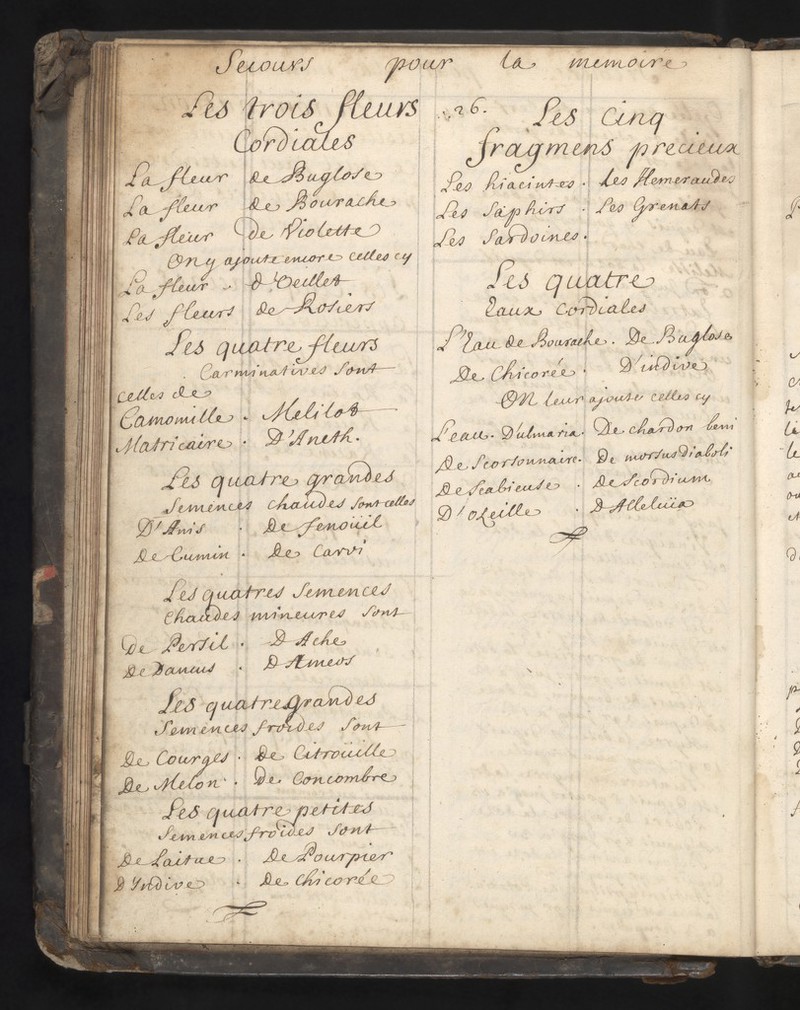 Secours pour la memoire
Les trois fleurs
Cordiales
La fleur de Buglose
La fleur de Bourache
La fleur de Violette
On y ajoute encore celles cy
La fleur d'Oeillet
Les fleurs de Rosiers
Les quatre fleurs
Carminatives sont
celles de
Camomille . Melilot
Matricaire . D'Aneth.
Les quatre grandes
Semences chaudes sont celles
D'Anis . De fenoüil
De Cumin . De Carvi
Les quatres Semences
Chaudes mineures sont
de Persil . D Ache
De Daucus . D Ameos
Les quatre grandes
Semences froides sont
De Courges . De Citroüille
De Melon . De Concombre
Les quatre petites
Semences froides sont
De Laitue . De Pourpier
D'Indive . De Chicorée
26.
Les Cinq
fragmens precieux
Les hiacintes . les Hemeraudes
Les Saphirs . Les Grenats
Les Sardoines .
Les quatre
Eaux Cordiales
L'Eau de Bourache . De Buglose
De Chicorée . D'indive
On leur ajoute celles cy
L'eau D'ulmaria . De chardon beni
De Scorsonnaire . De morsus Diaboli
De Scabieuse . de Scordium
D'ozeille . D Alleluüa